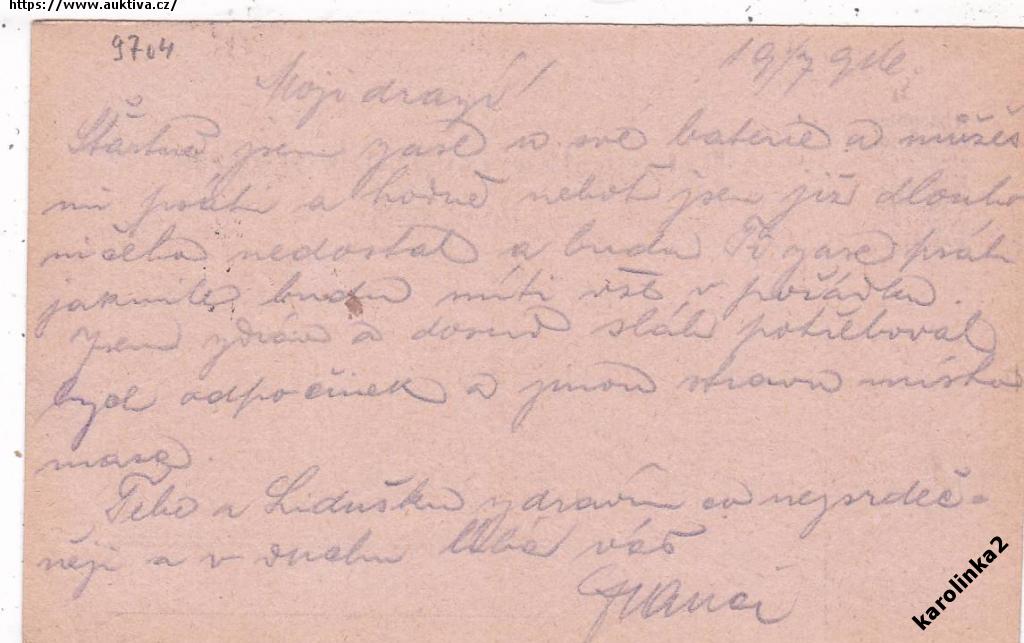 https://www.auktiva.cz/
9704
19/7 916
Moji drazí!
Šťastně jsem zase u své baterie a můžeš
mi psáti a hodně neboť jsem již dlouho
ničeho nedostal a budu Ti zase psáti
jakmile budu míti vše v pořádku.
Jsem zdráv a dosud sláb potřeboval
bych odpočinek a jinou stravu místo
masa.
Tebe a Lidušku zdravím co nejsrdeč-
něji a v duchu líbá váš
karolinka2